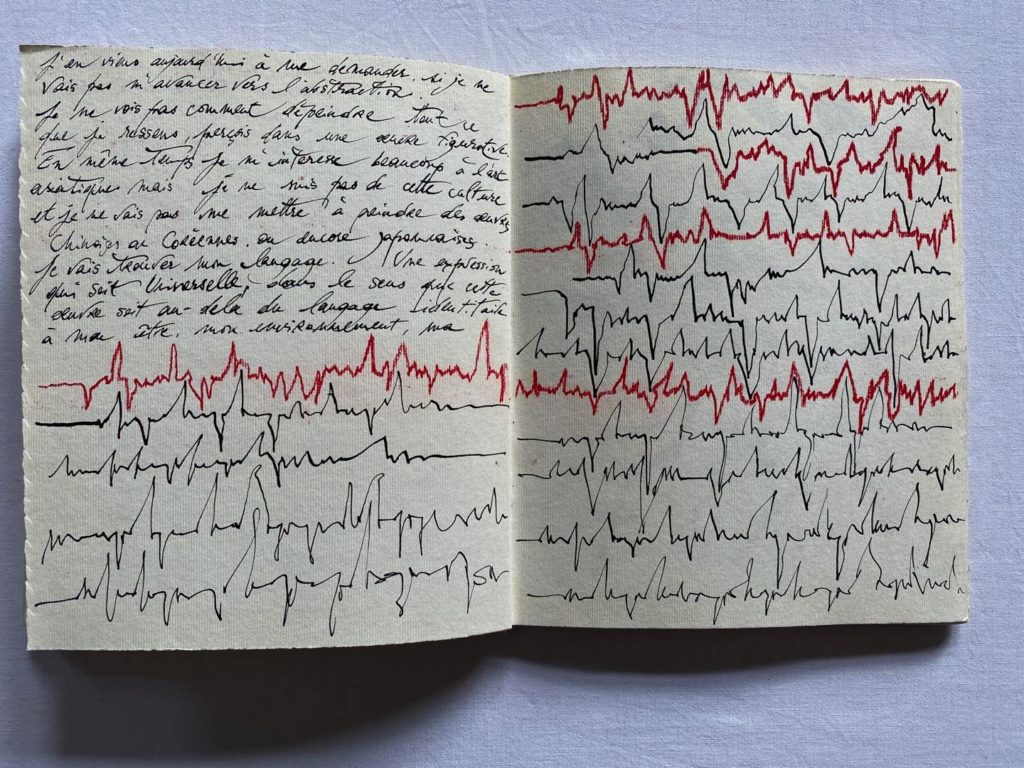 J'en viens aujourd'hui à me demander si je ne
vais pas m'avancer vers l'abstraction.
Je ne vois pas comment dépeindre tout ce
que je ressens, perçois dans une œuvre figurative.
En même temps je m'intéresse beaucoup à l'art
asiatique mais je ne suis pas de cette culture
et je ne vais pas me mettre à peindre des œuvres
Chinoises ou Coréennes ou encore japonaises.
Je vais trouver mon langage. Une expression
qui soit Universelle, dans le sens que cette
œuvre soit au-delà du langage identitaire
à mon être, mon environnement, ma